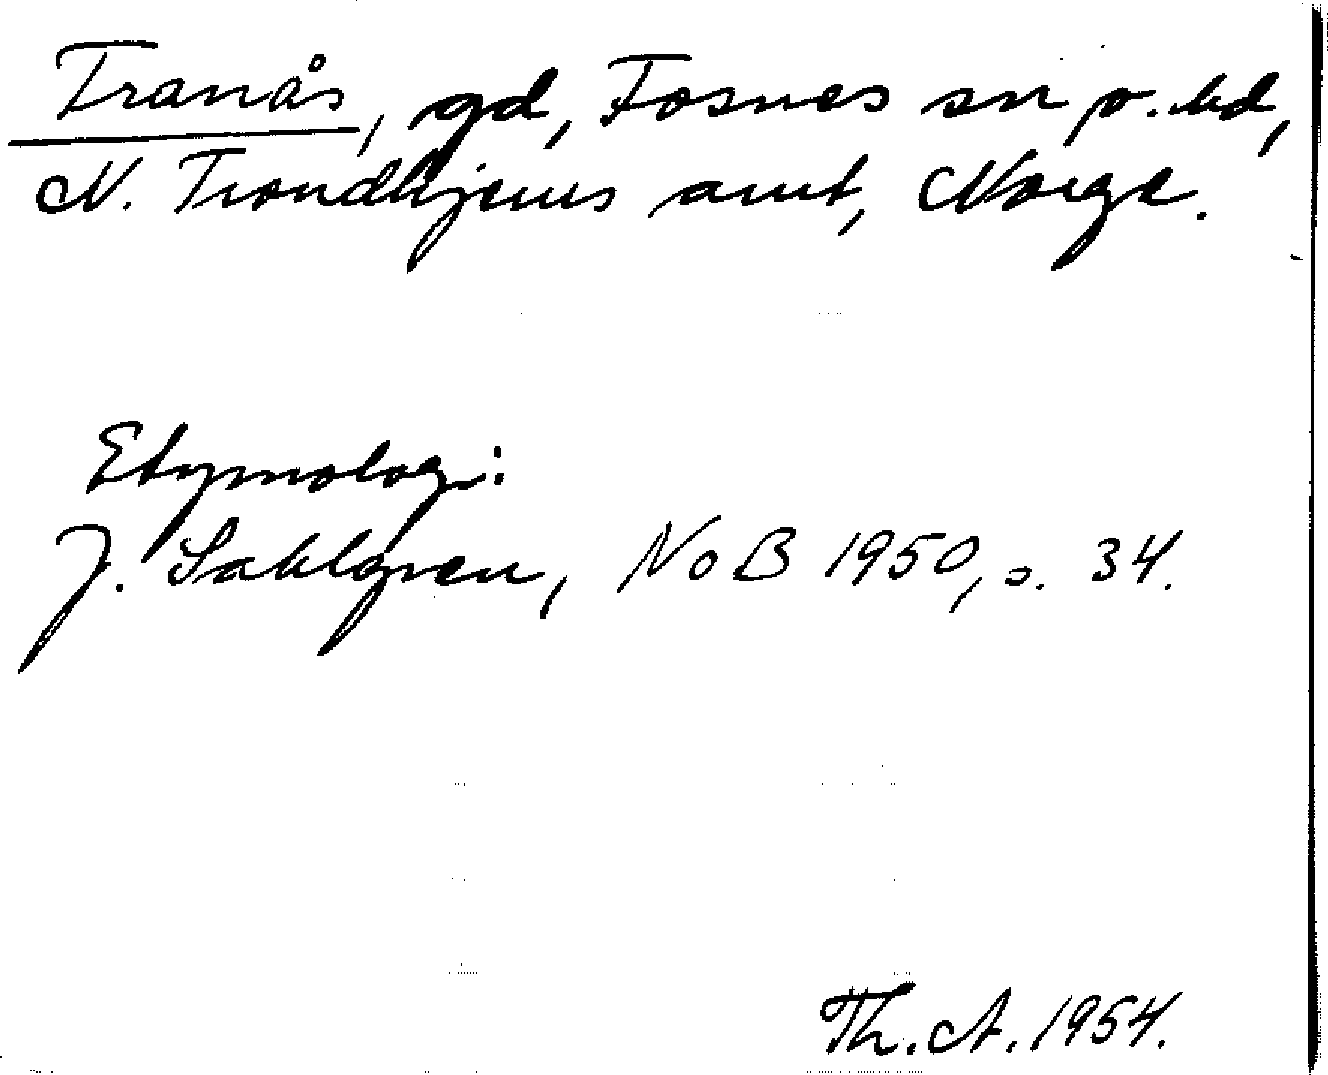 Tranås, gd, Fosnes sn o. hd,
N. Trondhjems amt, Norge.
Etymologi:
J. Sahlgren, NoB 1950, s. 34.
Th. A. 1954.